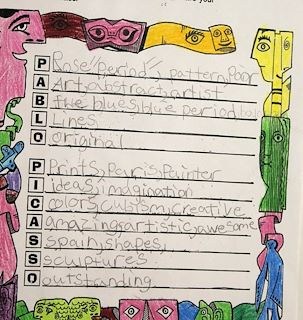 P Rose period, pattern, Poor
A Art, abstract, artist
B the blues, blue period, 
L Lines
O original
P Prints, Paris, Painter
I ideas, imagination
C colors, cubism, creative
A amazing, artistic, awesome
S spain, shapes,
S sculptures
O outstanding